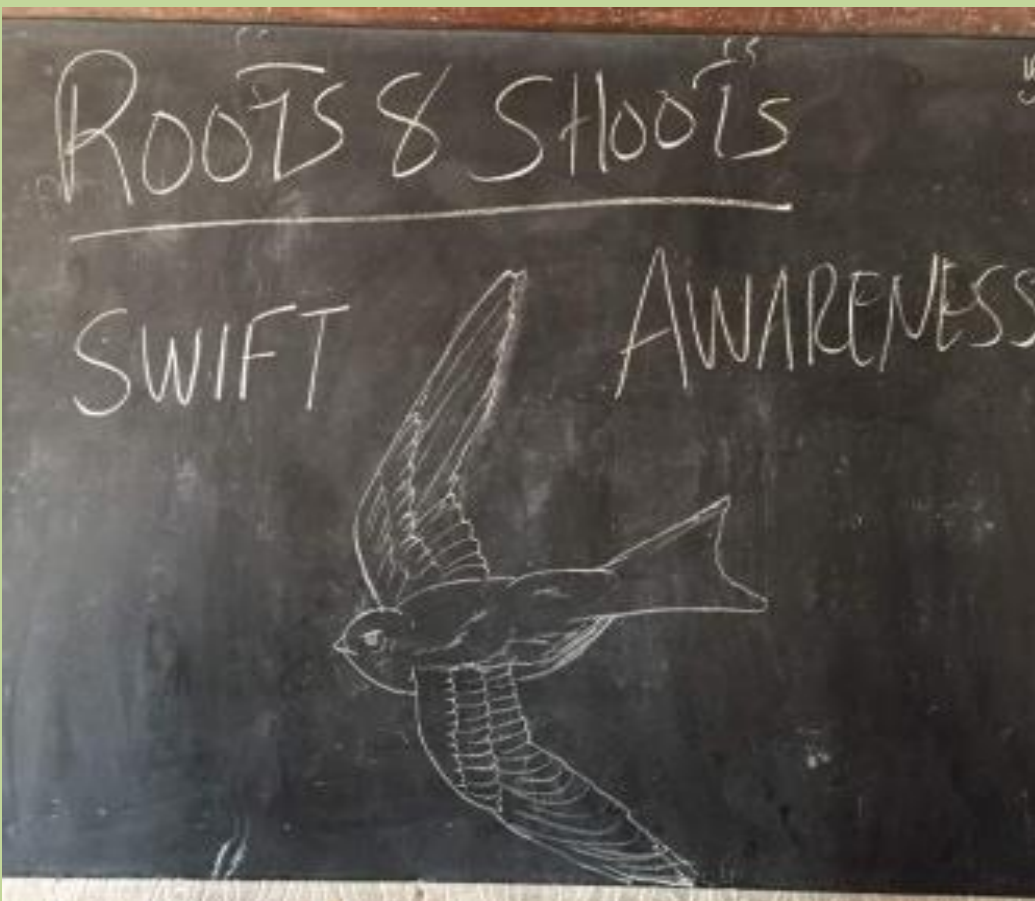 ROOTS & SHOOTS
SWIFT AWARENESS